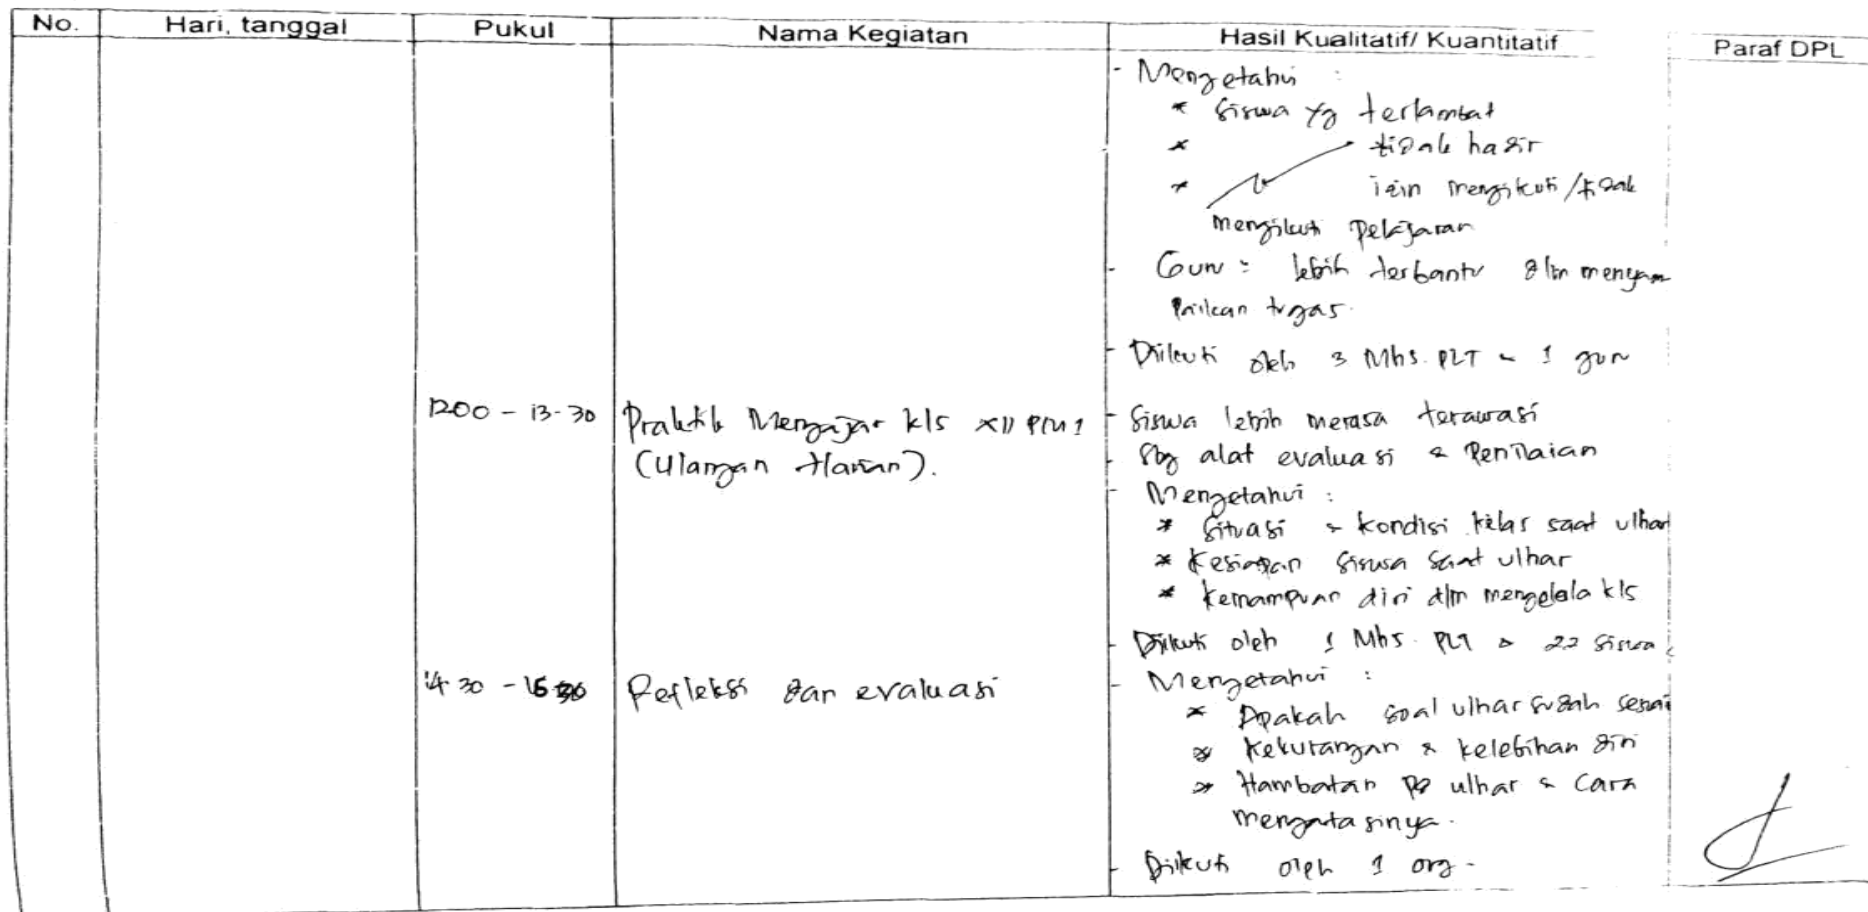 No. Hari, tanggal Pukul Nama Kegiatan Hasil Kualitatif/ Kuantitatif Paraf DPL
- Mengetahui :
* siswa yg terlambat
* tidak hadir
* izin mengikuti/tidak
mengikuti pelajaran
- Guru : lebih terbantu dlm menyam
paikan tugas.
- Diikuti oleh 3 Mhs. PLT & 1 guru
1200 - 13-30 Praktik Mengajar kls XII PM 1 - Siswa lebih merasa terawasi
(Ulangan Harian). - Sbg alat evaluasi & Penilaian
- Mengetahui :
* Situasi & kondisi kelas saat ulhar
* Kesiapan siswa saat ulhar
* Kemampuan diri dlm mengelola kls
- Diikuti oleh 1 Mhs. PLT & 22 siswa
14 30 - Refleksi dan evaluasi - Mengetahui :
* Apakah soal ulhar sudah sesuai
* Kekurangan & kelebihan diri
* Hambatan pd ulhar & Cara
mengatasinya.
- Diikuti oleh 1 org.